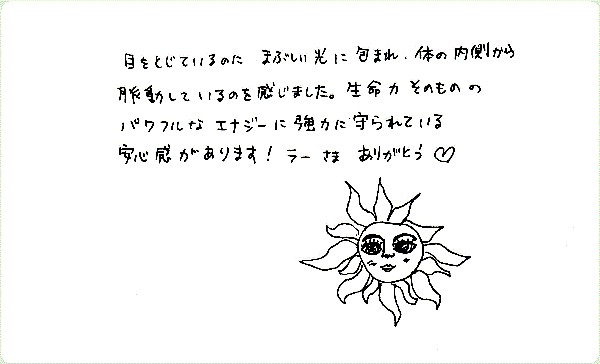 目をとじているのに まぶしい光に包まれ、体の内側から
脈動しているのを感じました。生命力そのものの
パワフルなエナジーに強力に守られている
安心感があります！ラーさま ありがとう♡